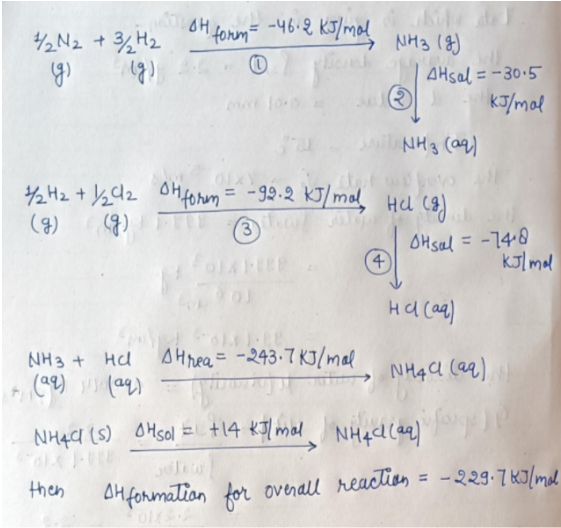 ½N2 + 3/2H2 ΔHform = -46.2 KJ/mol NH3 (g)
(g) (g) ① ② ΔHsol = -30.5
KJ/mol
NH3 (aq)
½H2 + ½Cl2 ΔHform = -92.2 KJ/mol HCl (g)
(g) (g) ③ ④ ΔHsol = -74.8
KJ/mol
HCl (aq)
NH3 + HCl ΔHrea = -243.7 KJ/mol NH4Cl (aq)
(aq) (aq)
NH4Cl (s) ΔHsol = +14 KJ/mol NH4Cl (aq)
then ΔHformation for overall reaction = -229.7 KJ/mol